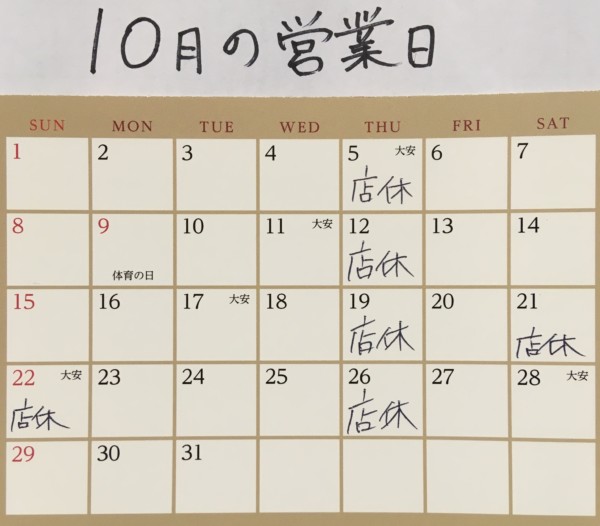 10月の営業日
SUN MON TUE WED THU FRI SAT
1 2 3 4 5 大安 6 7
店休
8 9 10 11 大安 12 13 14
体育の日 店休
15 16 17 大安 18 19 20 21
店休 店休
22 大安 23 24 25 26 27 28 大安
店休 店休
29 30 31